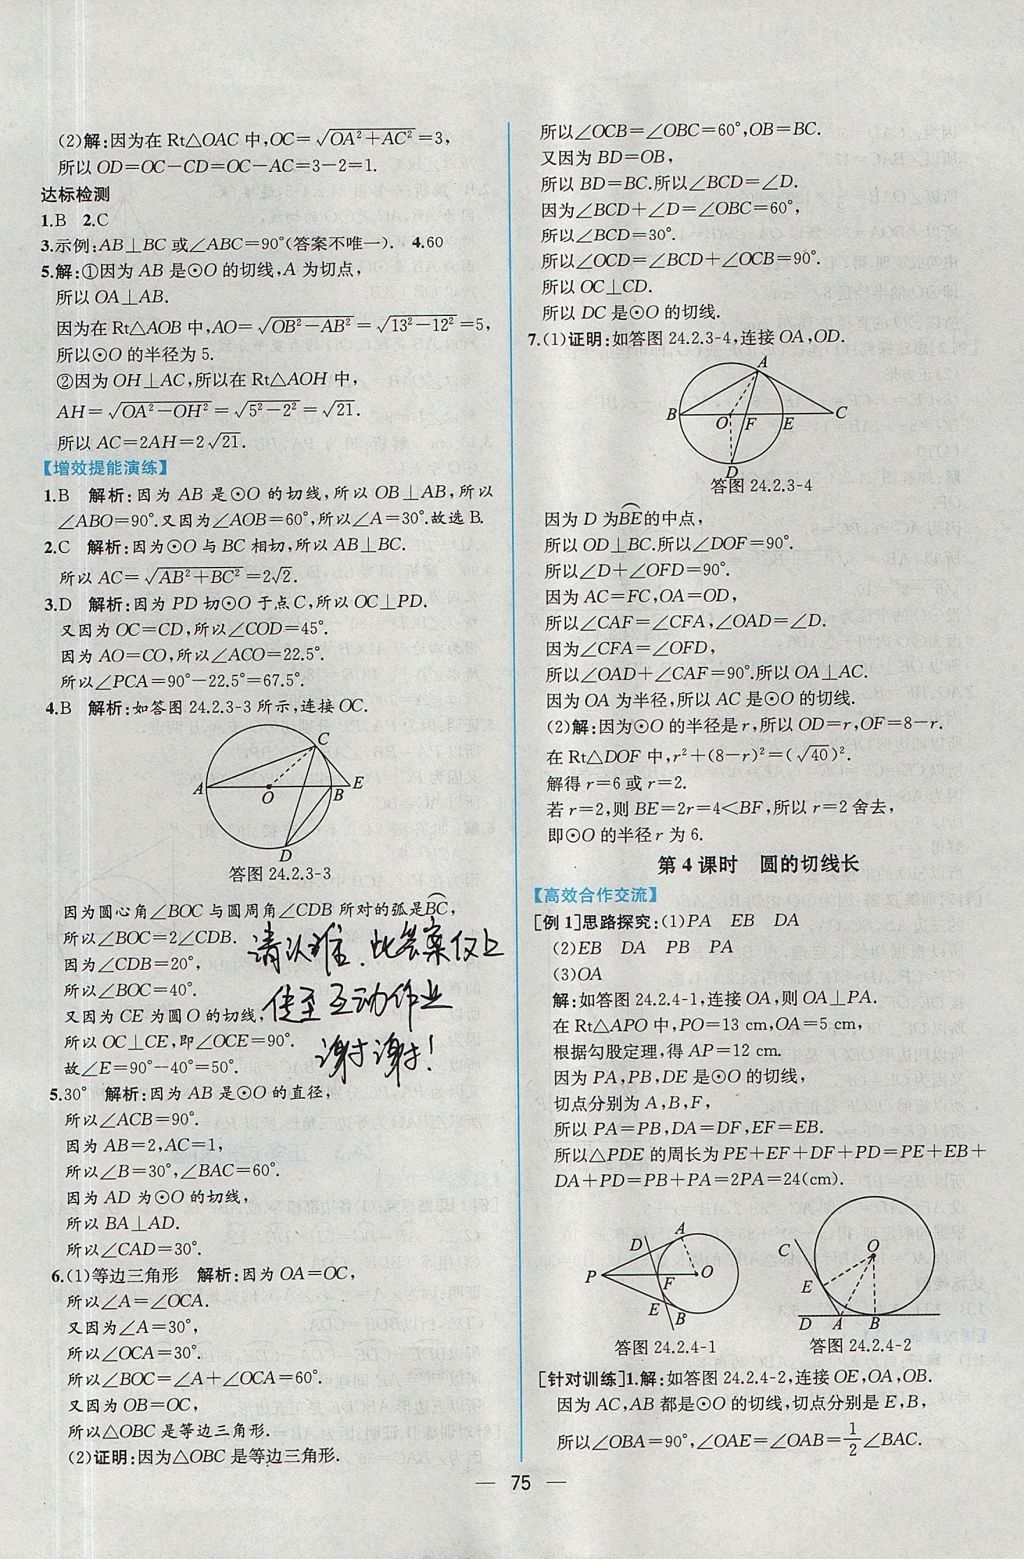 (2)解:因为在Rt△OAC中,OC=√(OA²+AC²)=3,
所以OD=OC-CD=OC-AC=3-2=1.
达标检测
1.B 2.C
3.示例:AB⊥BC或∠ABC=90°(答案不唯一). 4.60
5.解:①因为AB是⊙O的切线,A为切点,
所以OA⊥AB.
因为在Rt△AOB中,AO=√(OB²-AB²)=√(13²-12²)=5,
所以⊙O的半径为5.
②因为OH⊥AC,所以在Rt△AOH中,
AH=√(OA²-OH²)=√(5²-2²)=√21.
所以AC=2AH=2√21.
【增效提能演练】
1.B 解析:因为AB是⊙O的切线,所以OB⊥AB,所以
∠ABO=90°.又因为∠AOB=60°,所以∠A=30°.故选B.
2.C 解析:因为⊙O与BC相切,所以AB⊥BC.
所以AC=√(AB²+BC²)=2√2.
3.D 解析:因为PD切⊙O于点C,所以OC⊥PD.
又因为OC=CD,所以∠COD=45°.
因为AO=CO,所以∠ACO=22.5°.
所以∠PCA=90°-22.5°=67.5°.
4.B 解析:如答图24.2.3-3所示,连接OC.
C
A O B E
D
答图24.2.3-3
因为圆心角∠BOC与圆周角∠CDB所对的弧是BC,
所以∠BOC=2∠CDB.
因为∠CDB=20°,
所以∠BOC=40°.
又因为CE为圆O的切线,
所以OC⊥CE,即∠OCE=90°.
故∠E=90°--40°=50°.
请认准,此答案仅上
传至互动作业
谢谢!
5.30° 解析:因为AB是⊙O的直径,
所以∠ACB=90°.
因为AB=2,AC=1,
所以∠B=30°,∠BAC=60°.
因为AD为⊙O的切线,
所以BA⊥AD.
所以∠CAD=30°.
6.(1)等边三角形 解析:因为OA=OC,
所以∠A=∠OCA.
又因为∠A=30°,
所以∠OCA=30°.
所以∠BOC=∠A+∠OCA=60°.
又因为OB=OC,
所以△OBC是等边三角形.
(2)证明:因为△OBC是等边三角形.
所以∠OCB=∠OBC=60°,OB=BC.
又因为BD=OB,
所以BD=BC.所以∠BCD=∠D.
因为∠BCD+∠D=∠OBC=60°,
所以∠BCD=30°.
所以∠OCD=∠BCD+∠OCB=90°.
所以OC⊥CD.
所以DC是⊙O的切线.
7.(1)证明:如答图24.2.3-4,连接OA,OD.
A
B O F E C
D
答图24.2.3-4
因为D为BE的中点,
所以OD⊥BC.所以∠DOF=90°.
所以∠D+∠OFD=90°.
因为AC=FC,OA=OD,
所以∠CAF=∠CFA,∠OAD=∠D.
因为∠CFA=∠OFD,
所以∠OAD+∠CAF=90°.所以OA⊥AC.
因为OA为半径,所以AC是⊙O的切线.
(2)解:因为⊙O的半径是r,所以OD=r,OF=8-r.
在Rt△DOF中,r²+(8-r)²=(√40)².
解得r=6或r=2.
若r=2,则BE=2r=4<BF,所以r=2舍去,
即⊙O的半径r为6.
第4课时 圆的切线长
【高效合作交流】
[例1]思路探究:(1)PA EB DA
(2)EB DA PB PA
(3)OA
解:如答图24.2.4-1,连接OA,则OA⊥PA.
在Rt△APO中,PO=13 cm,OA=5 cm,
根据勾股定理,得AP=12 cm.
因为PA,PB,DE是⊙O的切线,
切点分别为A,B,F,
所以PA=PB,DA=DF,EF=EB.
所以△PDE的周长为PE+EF+DF+PD=PE+EB+
DA+PD=PB+PA=2PA=24(cm).
D A
P F O
E B
答图24.2.4-1
C O
E
D A B
答图24.2.4-2
[针对训练]1.解:如答图24.2.4-2,连接OE,OA,OB.
因为AC,AB都是⊙O的切线,切点分别是E,B,
所以∠OBA=90°,∠OAE=∠OAB=1/2∠BAC.
— 75 —